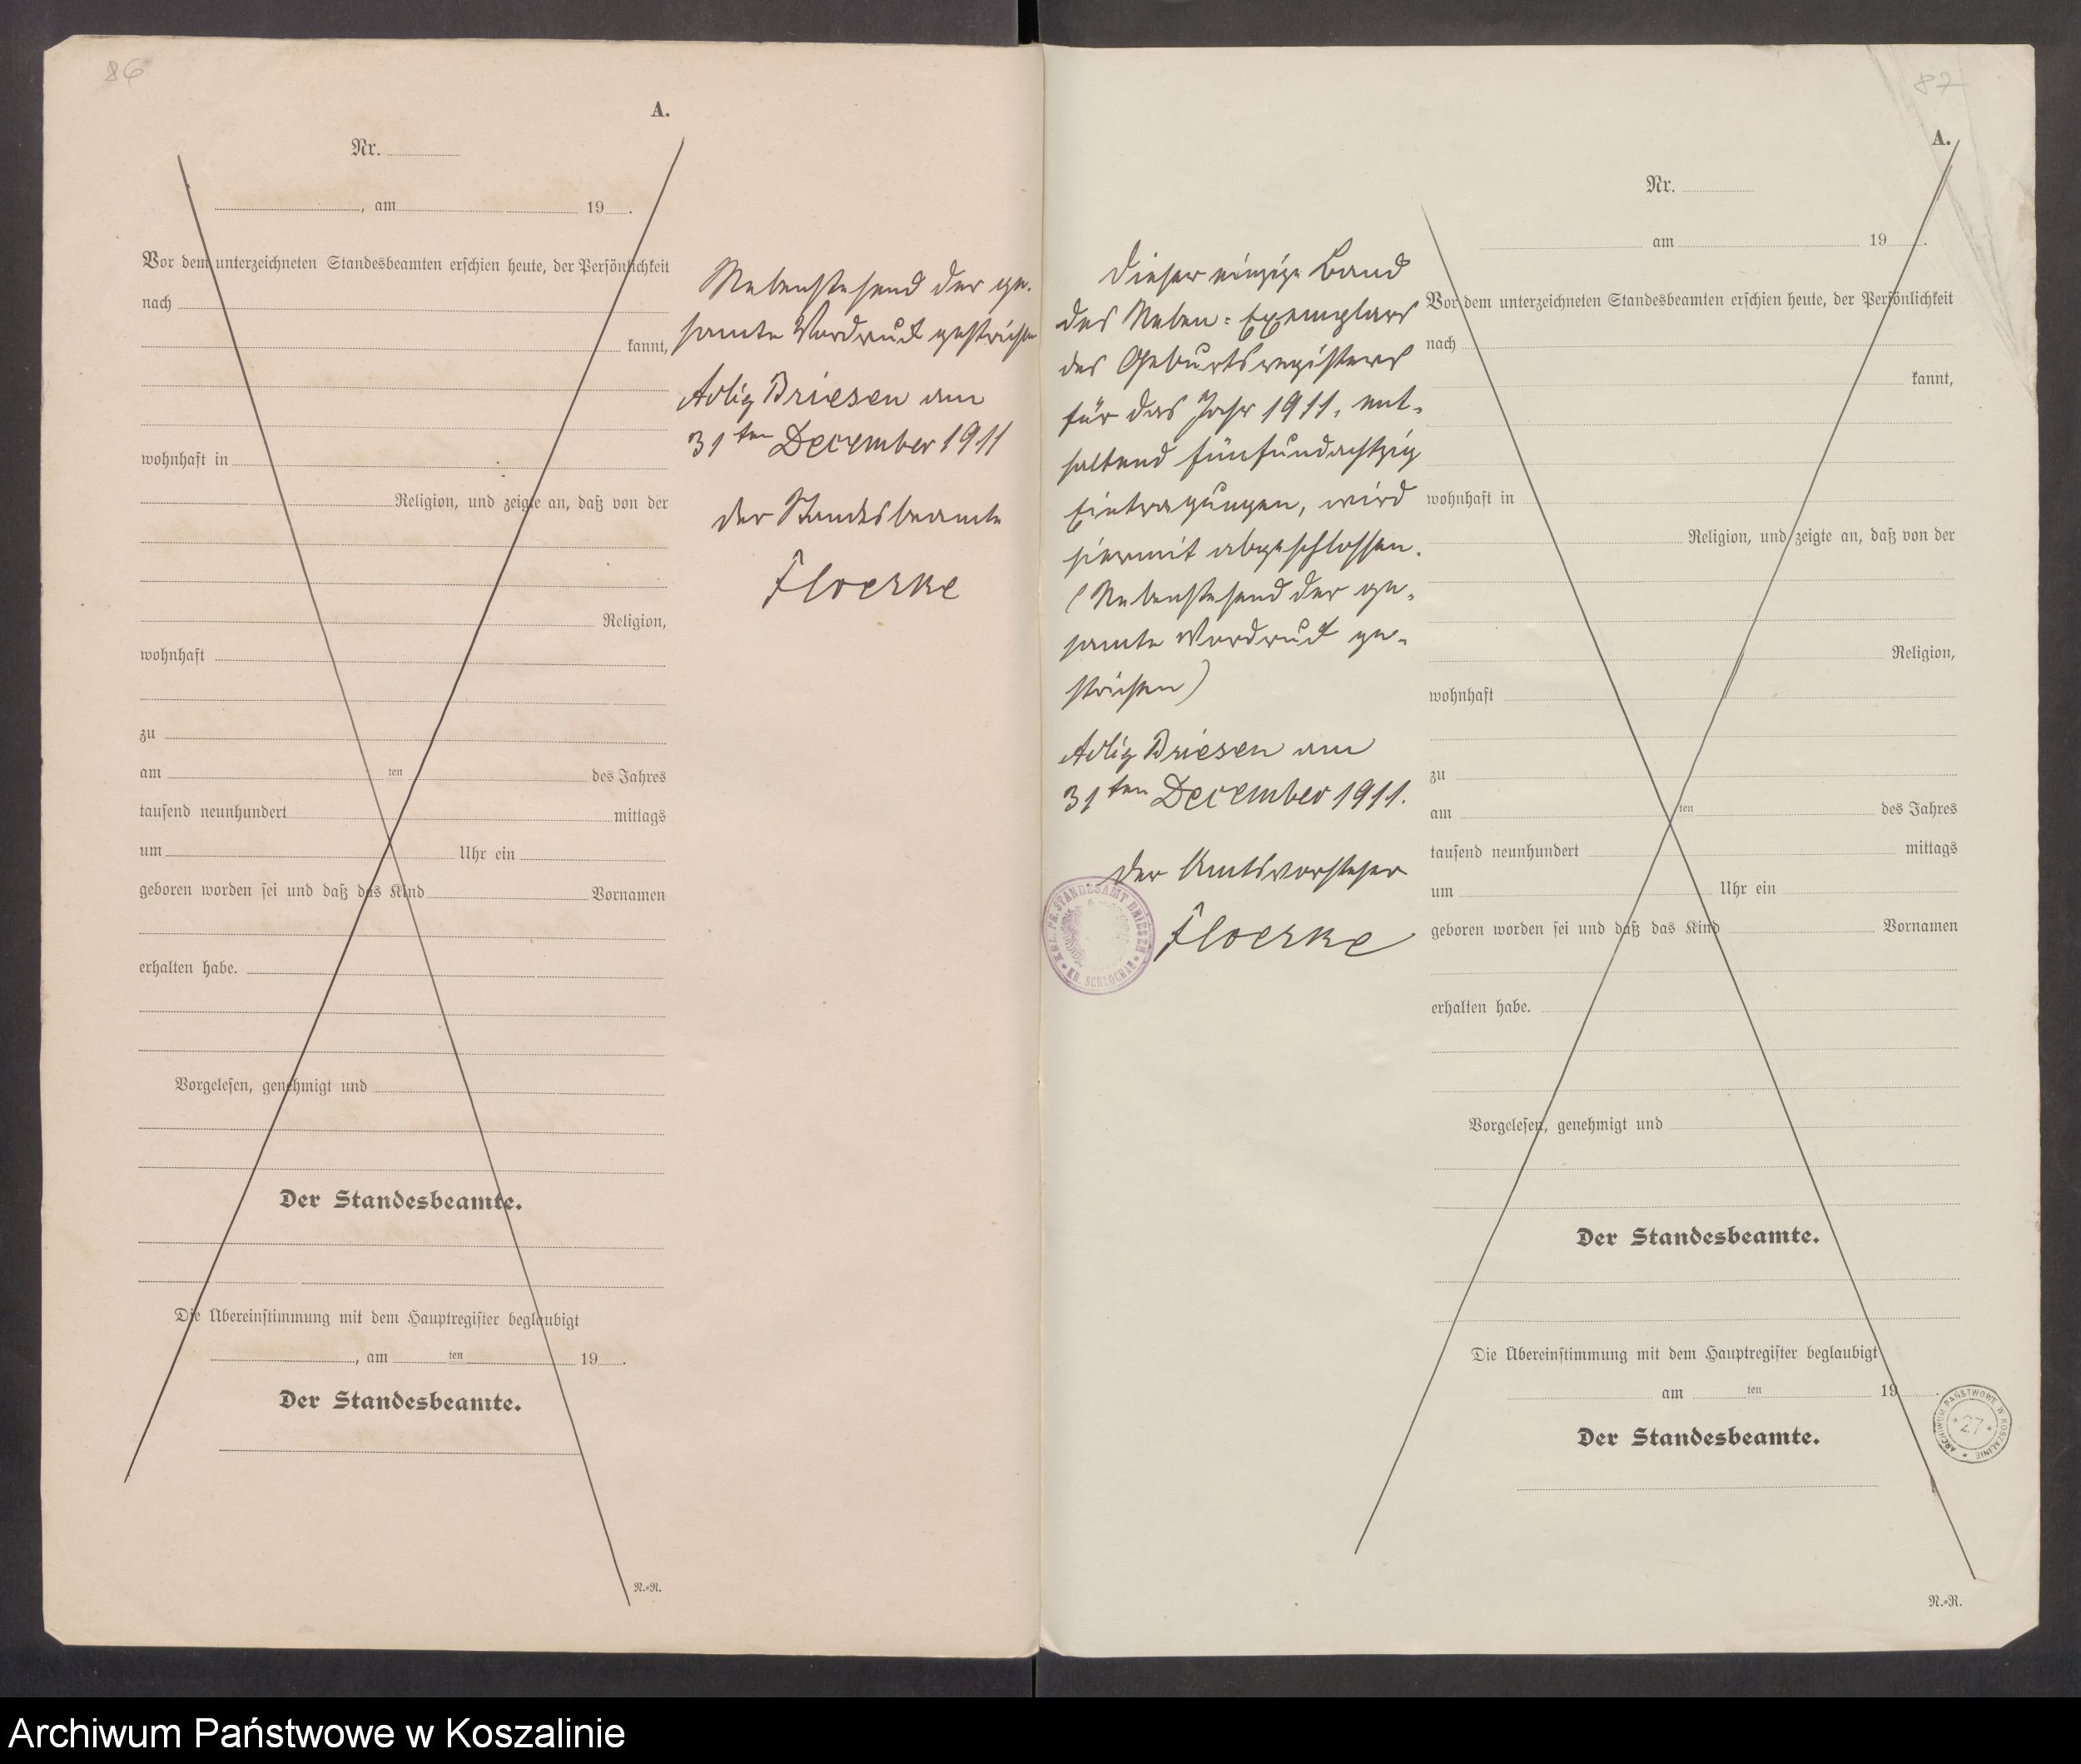 86
A.
Nr.
, am 19 .
Vor dem unterzeichneten Standesbeamten erschien heute, der Persönlichkeit
nach
kannt,
wohnhaft in
Religion, und zeigte an, daß von der
Religion,
wohnhaft
zu
am ten des Jahres
tausend neunhundert mittags
um Uhr ein
geboren worden sei und daß das Kind Vornamen
erhalten habe.
Vorgelesen, genehmigt und
Der Standesbeamte.
Die Übereinstimmung mit dem Hauptregister beglaubigt
, am ten 19 .
Der Standesbeamte.
N.=R.
Nebenstehend der ge-
samte Vordruck gestrichen
Adlig Briesen am
31ten December 1911
der Standesbeamte
Floerke
Dieser einzige Band
des Neben-Exemplars
des Geburtsregisters
für das Jahr 1911, ent-
haltend fünfundachtzig
Eintragungen, wird
hiermit abgeschlossen.
(Nebenstehend der ge-
samte Vordruck ge-
strichen)
Adlig Briesen am
31ten December 1911.
der Amtsvorsteher
Floerke
KGL. PR. STANDESAMT BRIESEN
* KR. SCHLOCHAU *
87
A.
Nr.
am 19 .
Vor dem unterzeichneten Standesbeamten erschien heute, der Persönlichkeit
nach
kannt,
wohnhaft in
Religion, und zeigte an, daß von der
Religion,
wohnhaft
zu
am ten des Jahres
tausend neunhundert mittags
um Uhr ein
geboren worden sei und daß das Kind Vornamen
erhalten habe.
Vorgelesen, genehmigt und
Der Standesbeamte.
Die Übereinstimmung mit dem Hauptregister beglaubigt
am ten 19 .
Der Standesbeamte.
ARCHIWUM PAŃSTWOWE W KOSZALINIE
* 27 *
N.=R.
Archiwum Państwowe w Koszalinie